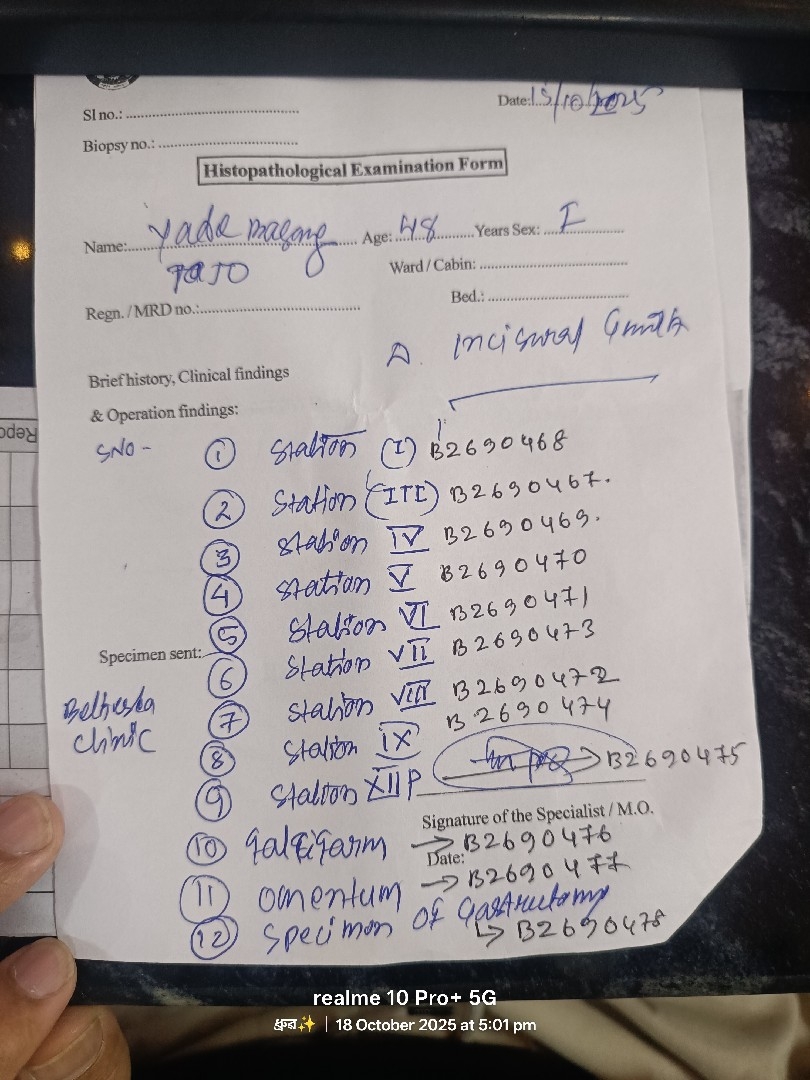 Sl no.:
Date: 15/10/2025
Biopsy no.:
Histopathological Examination Form
Name: Age: 48 Years Sex:
Ward / Cabin:
Regn. / MRD no.:
Bed.:
Brief history, Clinical findings
& Operation findings:
SNO -
① Station (I) B2690468
② Station (III) B2690467.
③ Station IV B2690469.
④ Station V B2690470
⑤ Station VI B2690471
⑥ Station VII B2690473
Specimen sent:
⑦ Station VIII B2690472
⑧ Station IX B2690474
Clinic
⑨ Station XII P → B2690475
Signature of the Specialist / M.O.
⑩ → B2690476
Date:
⑪ omentum → B2690477
⑫ specimon OF
↳ B2690478
realme 10 Pro+ 5G
ধ্রুব✨ | 18 October 2025 at 5:01 pm